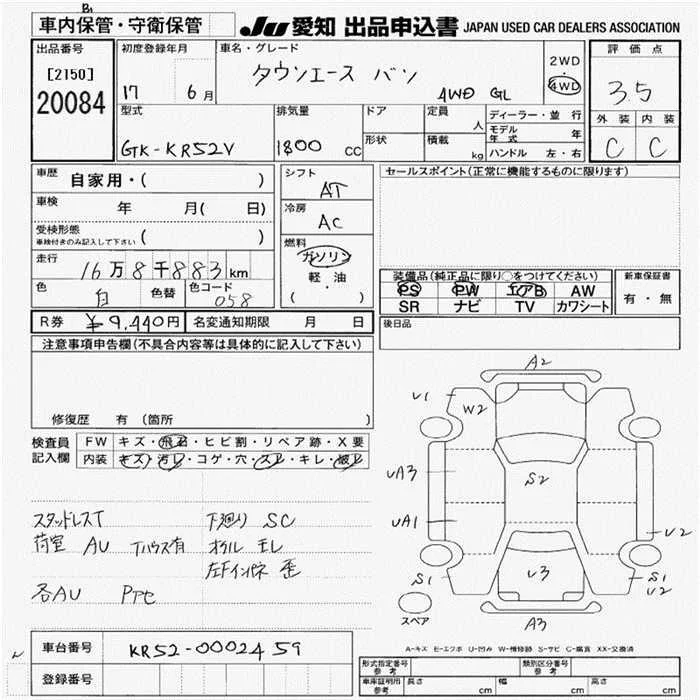 B1
車内保管・守衛保管
JU 愛知 出品申込書 JAPAN USED CAR DEALERS ASSOCIATION
出品番号
[2150]
20084
初度登録年月
17 6月
車名・グレード
タウンエース バン
4WD GL
2WD
・
4WD
評価点
3.5
外装 内装
C C
型式
GK-KR52V
排気量
1800 cc
ドア
形状
定員 人
積載 kg
ディーラー・並行
モデル年式 年
ハンドル 左・右
車歴 自家用・( )
車検 年 月( 日)
受検形態
車検付きのみ記入して下さい ( )
走行 16万8千883km
色 白 色替 色コード 058
シフト AT
冷房 AC
燃料
ガソリン
軽・油
( )
セールスポイント(正常に機能するものに限ります)
装備品(純正品に限り○をつけてください)
PS PW エアB AW
SR ナビ TV カワシート
新車保証書
有・無
後日品
R券 ¥9,440円 名変通知期限 月 日
注意事項申告欄(不具合内容等は具体的に記入して下さい)
修復歴 有 (箇所 )
検査員記入欄
FW キズ・飛石・ヒビ割・リペア跡・X要
内装 キズ・汚レ・コゲ・穴・スレ・キレ・破レ
スタッドレスT 下廻り SC
荷室 AU Tハウス有 オイル モレ
左Fインパネ 歪
各AU
A2
U1
W2
UA3
UA1
S2
U3
U2
S1
S1
U2
A3
スペア
A-キズ E-エクボ U-凹み W-補修跡 S-サビ C-腐食 XX-交換済
車台番号 KR52-0002459
登録番号
形式指定番号 参考
類別区分番号 参考
車庫証明用 参考 長さ cm 幅 cm 高さ cm